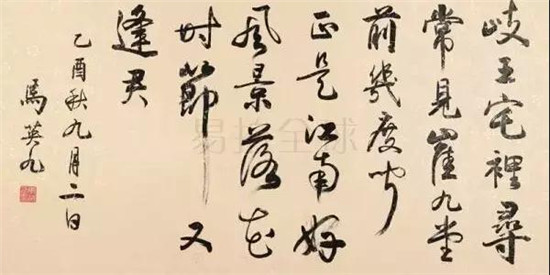 岐王宅裡尋
常見崔九堂
前幾度聞
正是江南好
風景落花
時節又
逢君
乙酉秋九月二日
馬英九
易拍全球